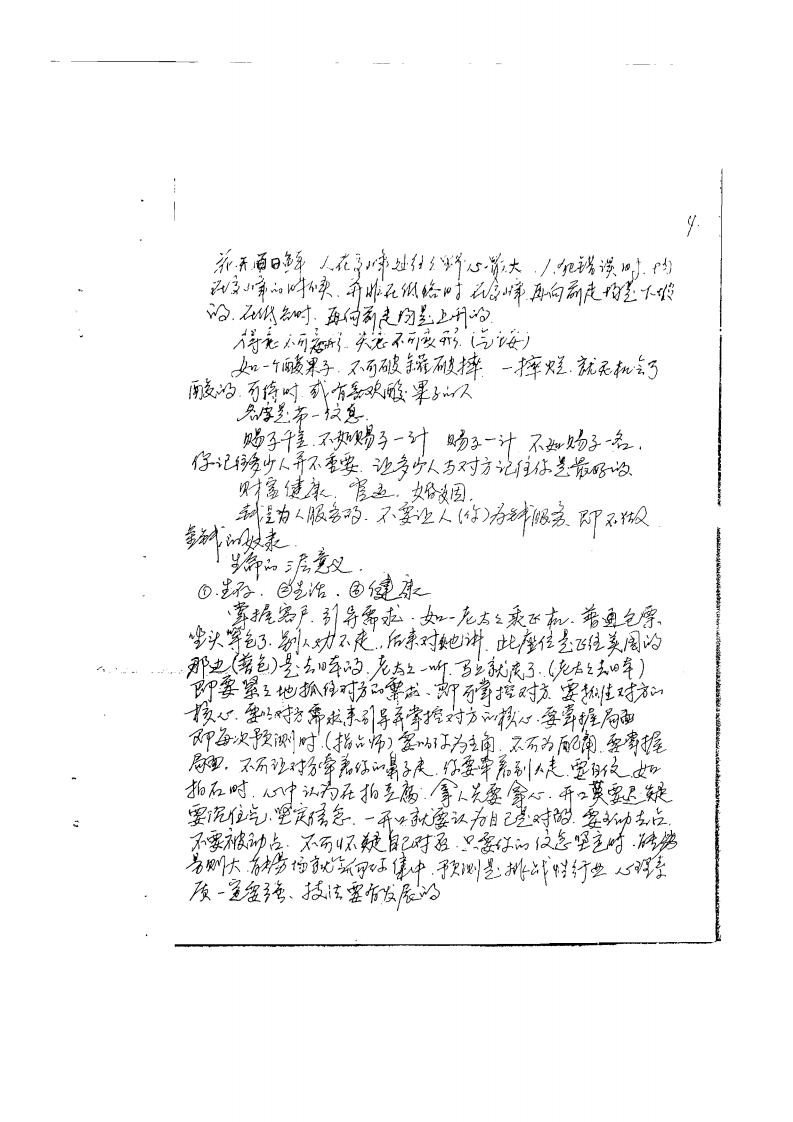 4.
花无百日鲜 人在高峰处往往野心最大．人犯错误时．均
在高峰的时候．并非在低谷时 在高峰．再向前走均是下坡
的．在低谷时．再向前走均是上升的．
得意不可忘形．失意不可变形．(气场)
如一个酸果子．不可破罐破摔．一摔烂．就无机会了
酸的．可待时．或有喜欢酸果子的人
名字是第一信息．
赐子千金．不如赐子一计 赐子一计 不如赐子一名．
你记住多少人并不重要．让多少人与对方记住你是最好的
财富健康．官运．婚姻．
钱是为人服务的．不要让人(你)为钱服务．即不做
金钱的奴隶．
生命的三层意义．
①生存．②生活．③健康
掌握客户．引导需求．如一老太太乘飞机．普通仓票．
坐头等仓了．别人劝不走．后来对她讲．此座位是飞往美国的
那边(普仓)是去日本的．老太太一听．马上就走了．(老太太去日本)
即要紧紧地抓住对方的需求．即可掌控对方．要抓住对方的
核心．要以对方需求来引导并掌控对方的核心．要掌握局面
即每次预测时．(指占师)要以你为主角．不可为配角．要掌握
局面．不可让对方牵着你的鼻子走．你要牵着别人走．要自信．如
拍石时．心中认为在拍豆腐．拿人先要拿心．开口莫要迟疑
要沉住气．坚定信念．一开口就要认为自己是对的．要主动去占．
不要被动占．不可怀疑自己对否．只要你的信念坚定时．能
场则大．能场就会向你集中．预测是挑战性行业 心理素
质一定要强．技法要有发展的